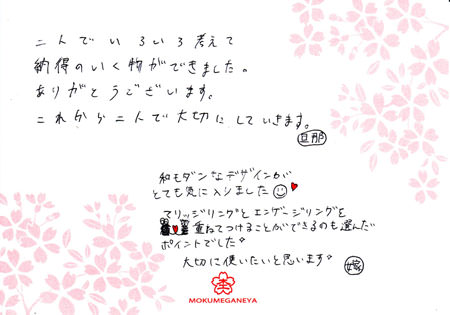 二人でいろいろ考えて
納得のいく物ができました。
ありがとうございます。
これから二人で大切にしていきます。
旦那
和モダンなデザインが
とても気に入りました
マリッジリングとエンゲージリングを
重ねてつけることができるのも選んだ
ポイントでした
大切に使いたいと思います
嫁
杢
MOKUMEGANEYA